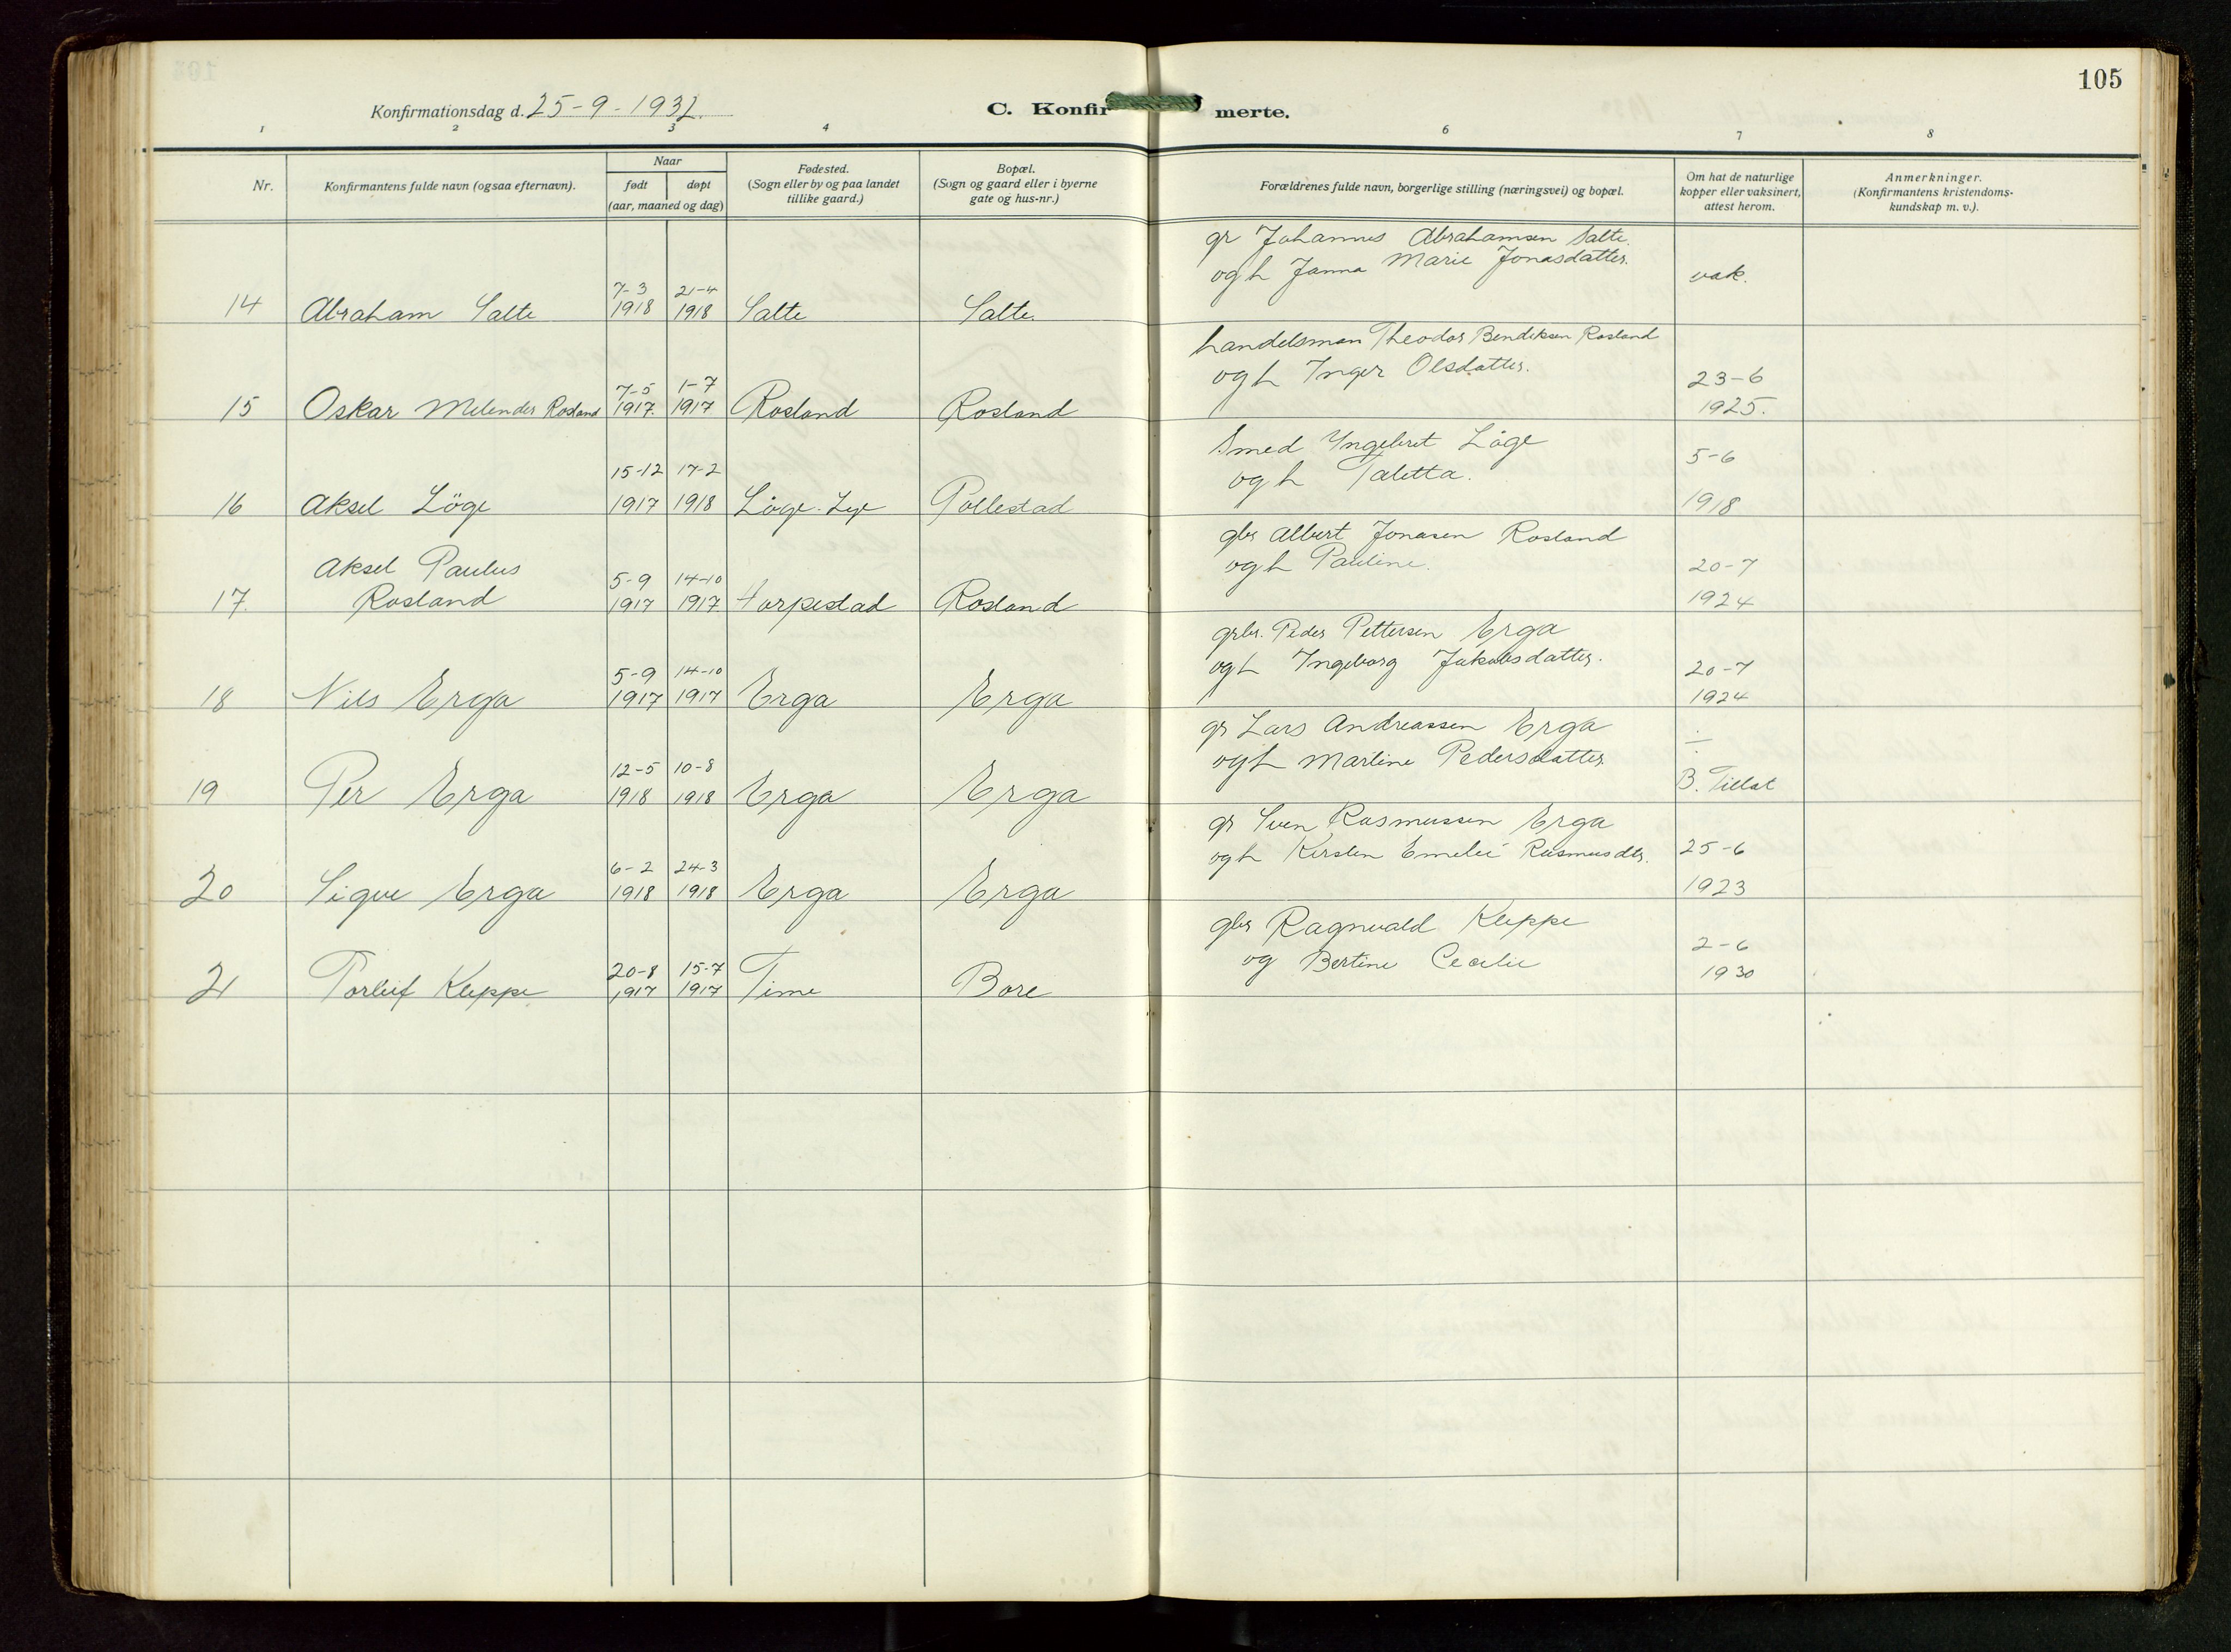 105
Konfirmationsdag d. 25-9-1932.
C. Konfirmerte.
1 2 3 4 6 7 8
Nr.
Konfirmantens fulde navn (ogsaa efternavn).
Naar
født døpt
(aar, maaned og dag)
Fødested.
(Sogn eller by og paa landet
tillike gaard.)
Bopæl.
(Sogn og gaard eller i byerne
gate og hus-nr.)
Forældrenes fulde navn, borgerlige stilling (næringsvei) og bopæl.
Om hat de naturlige
kopper eller vaksinert,
attest herom.
Anmerkninger.
(Konfirmantens kristendoms-
kundskap m. v.).
gr Johannes Abrahamsen Salte.
og h Janna Marie Jonasdatter.
vak.
7-3 21-4
14 Abraham Salte 1918 1918 Salte Salte.
handelsman Theodor Bendiksen Rosland
og h Inger Olsdatter.
23-6
7-5 1-7
15 Oskar Melender Rosland 1917. 1917 Rosland Rosland 1925.
Smed Yngebret Löge
og h Taletta.
5-6
15-12 17-2
16 Aksel Löge 1917 1918 Löge-Lye Pollestad 1918
gbr Albert Jonasen Rosland
og h Pauline.
20-7
Aksel Paulus 5-9 14-10
17. Rosland 1917 1917. Horpestad Rosland 1924
grbr. Peder Pettersen Erga
og h Ingeborg Jakobsdatter.
20-7
5-9 14-10
18 Nils Erga 1917 1917 Erga Erga 1924
gr Lars Andreassen Erga
og h Martine Pedersdatter
÷
12-5 10-8
19 Per Erga 1918 1918 Erga Erga B. Tillat
gr Sven Rasmussen Erga
og h Kirsten Emelie Rasmusdtr.
25-6
6-2 24-3
20 Sigve Erga 1918 1918 Erga Erga 1923
gbr Ragnvald Kleppe
og Bertine Cecelie
2-6
20-8 15-7
21 Torleif Kleppe 1917 1917 Time Bore 1930